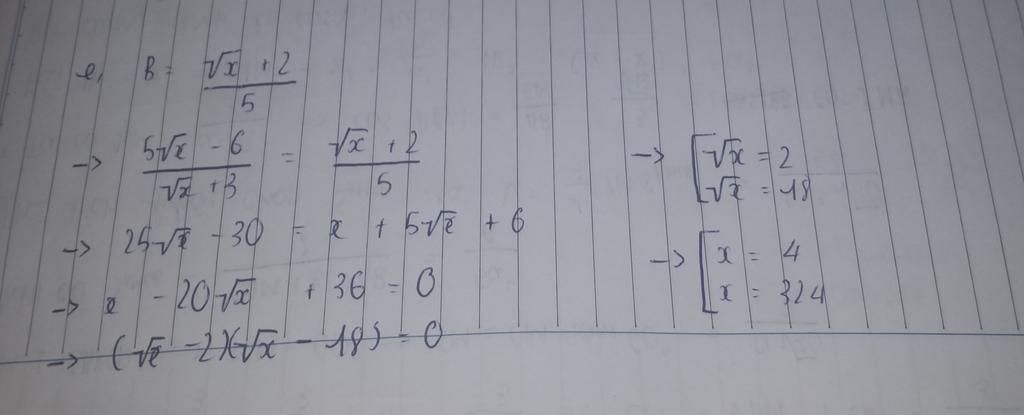 e, B = (√x + 2)/5
→ (5√x - 6)/(√x + 3) = (√x + 2)/5
→ 25√x - 30 = x + 5√x + 6
→ x - 20√x + 36 = 0
→ (√x - 2)(√x - 18) = 0
→ [ √x = 2
√x = 18
→ [ x = 4
x = 324